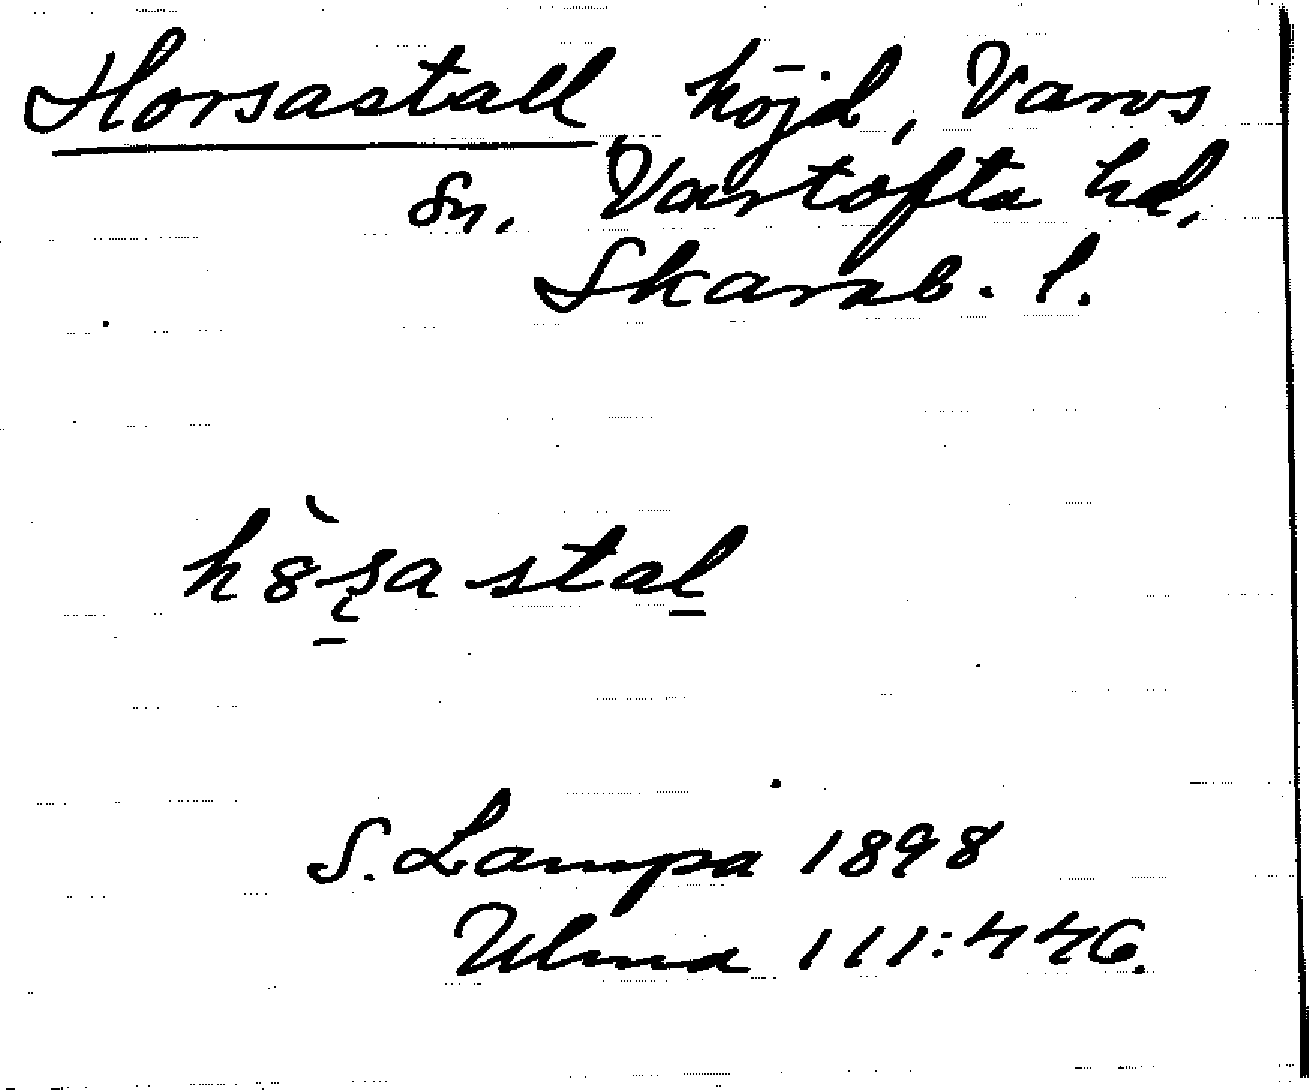 Horsastall, höjd, Varvs
sn, Vartofta hd,
Skarab. l.
h8̀ʂa stal̲
S. Lampa 1898
Ulma 111:446.